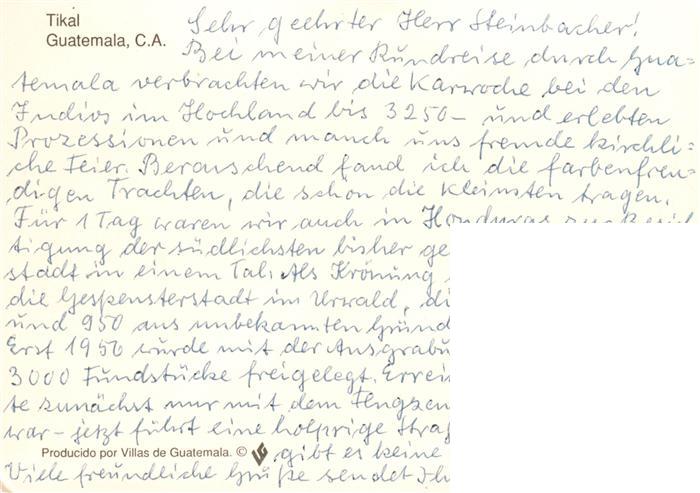 Tikal
Guatemala, C.A.
Sehr geehrter Herr Steinbacher!
Bei meiner Rundreise durch Gua=
temala verbrachten wir die Karwoche bei den
Indios im Hochland bis 3250– und erlebten
Prozessionen und manch uns fremde kirchli=
che Feier. Berauschend fand ich die farbenfreu=
digen Trachten, die schon die Kleinsten tragen.
Für 1 Tag waren wir auch in Honduras zur
tigung der südlichsten bisher ge
stadt in einem Tal. Als Krönung
die Gespensterstadt im Urwald, di
und 950 aus unbekannten Gründ
Erst 1956 wurde mit der Ausgrabu
3000 Fundstücke freigelegt. Errei
te zunächst nur mit dem Flugzeu
war – jetzt führt eine holprige Straß
Producido por Villas de Guatemala. ©
gibt es keine
Viele freundliche Grüße sendet Ih